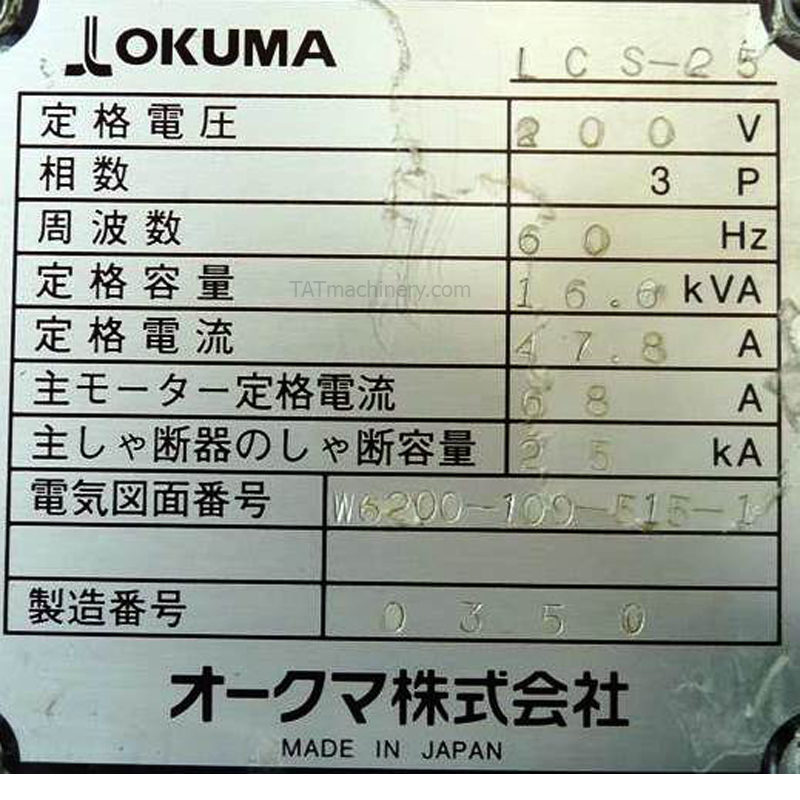 OKUMA LCS-25
定格電圧 200 V
相数 3 P
周波数 60 Hz
定格容量 16.6 kVA
定格電流 47.8 A
主モーター定格電流 68 A
主しゃ断器のしゃ断容量 25 kA
電気図面番号 W6200-109-515-1
製造番号 0350
オークマ株式会社
MADE IN JAPAN
TATmachinery.com